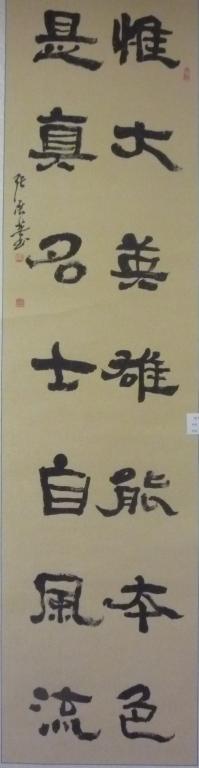 惟大英雄能本色
是真名士自風流